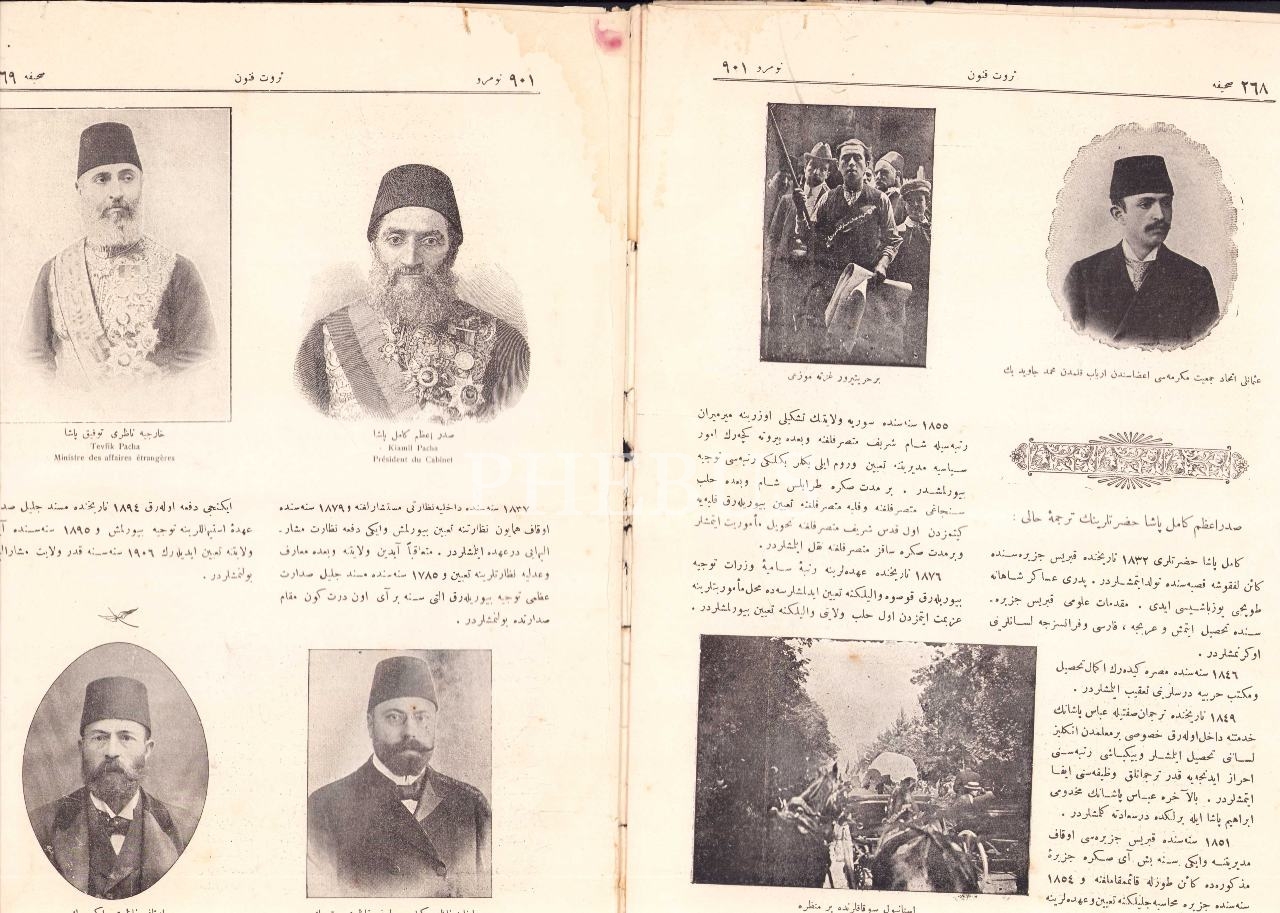 ٢٦٨ صحيفه
ثروت فنون
نومرو ٩٠١
عثمانلى اتحاد جمعيت مكرمه‌سى اعضاسندن ارباب قلمدن محمد جاويد بك
بر حريتپرور غزته موزعى
صدراعظم كامل پاشا حضرتلرينك ترجمهٔ حالى :
كامل پاشا حضرتلرى ١٨٣٢ تاريخنده قبريس جزيره‌سنده
كائن لفقوشه قصبه‌سنده تولد ايتمشلردر . پدرى عساكر شاهانه
طوپجى يوزباشيسى ايدى . مقدمات علومى قبريس جزيره‌
سنده تحصيل ايتمش و عربجه ، فارسى وفرانسزجه لسانلرينى
اوكرنمشلردر .
١٨٤٦ سنه‌سنده مصره كيده‌رك اكمال تحصيل
ومكتب حربيه درسلرينى تعقيب ايلمشلردر .
١٨٤٩ تاريخنده ترجمان صفتيله عباس پاشانك
خدمتنه داخل اوله‌رق خصوصى بر معلمدن انكليز
لسانى تحصيل ايلمشلر وبيكباشى رتبه‌سنى
احراز ايدنجه‌يه قدر ترجمانلق وظيفه‌سنى ايفا
ايتمشلردر . بالآخره عباس پاشانك مخدومى
ابراهيم پاشا ايله برلكده درسعادته كلمشلردر .
١٨٥١ سنه‌سنده قبريس جزيره‌سى اوقاف
مديريتنه وايكى سنه بش آى صكره جزيرهٔ
مذكوره‌ده كائن طوزله قائممقاملغنه و ١٨٥٤
سنه‌سنده جزيره محاسبه‌جيلكنه تعيين وعهده‌لرينه
١٨٥٥ سنه‌سنده سوريه ولايتنك تشكيلى اوزرينه ميرميران
رتبه‌سيله شام شريف متصرفلغنه وبعده بيروته كچه‌رك امور
سياسيه مديريتنه تعيين وروم ايلى بكلر بكلكى رتبه‌سى توجيه
بيورلمشدر . بر مدت صكره طرابلس شام وبعده حلب
سنجاغى متصرفلغنه وفلبه متصرفلغنه تعيين بيوريله‌رق فلبه‌يه
كيتمزدن اول قدس شريف متصرفلغنه تحويل مأموريت ايتمشلر
وبر مدت صكره ساقز متصرفلغنه نقل ايلمشلردر .
١٨٧٦ تاريخنده عهده‌لرينه رتبهٔ ساميهٔ وزرات توجيه
بيوريله‌رق قوصوه واليلكنه تعيين ايدلمشلرسه‌ده محل مأموريتلرينه
عزيمت ايتمزدن اول حلب ولايتى واليلكنه تعيين بيورلمشلردر .
استانبول سوقاقلرنده بر منظره
٩٠١ نومرو
ثروت فنون
صحيفه ٦٩
صدر اعظم كامل پاشا
Kiamil Pacha
Président du Cabinet
خارجيه ناظرى توفيق پاشا
Tevfik Pacha
Ministre des affaires étrangères
١٨٧٧ سنه‌سنده داخليه نظارتى مستشارلغنه و ١٨٧٩ سنه‌سنده
اوقاف همايون نظارتنه تعيين بيورلمش وايكى دفعه نظارت مشار
اليهايى درعهده ايلمشلردر . متعاقباً آيدين ولايتنه وبعده معارف
وعدليه نظارتلرينه تعيين و ١٧٨٥ سنه‌سنده مسند جليل صدارت
عظمى توجيه بيوريله‌رق التى سنه بر آى اون درت كون مقام
صدارتده بولنمشلردر .
ايكنجى دفعه اوله‌رق ١٨٩٤ تاريخنده مسند جليل صد
عهدهٔ استيهاللرينه توجيه بيورلمش و ١٨٩٥ سنه‌سنده آ
ولايتنه تعيين ايديله‌رك ١٩٠٦ سنه‌سنه قدر ولايت مشاراليه
بولنمشلردر .
PHEB